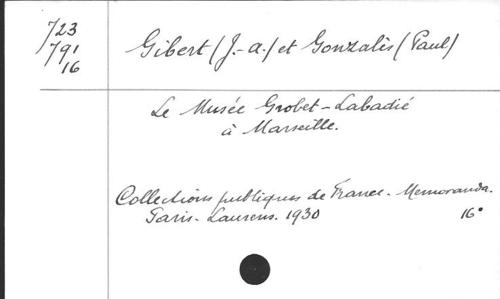 723
791
16
Gibert (J.-a.) et Gonzalès (Paul)
Le Musée Grobet-Labadié
à Marseille.
Collections publiques de France. Memoranda.
Paris. Laurens. 1930 16°